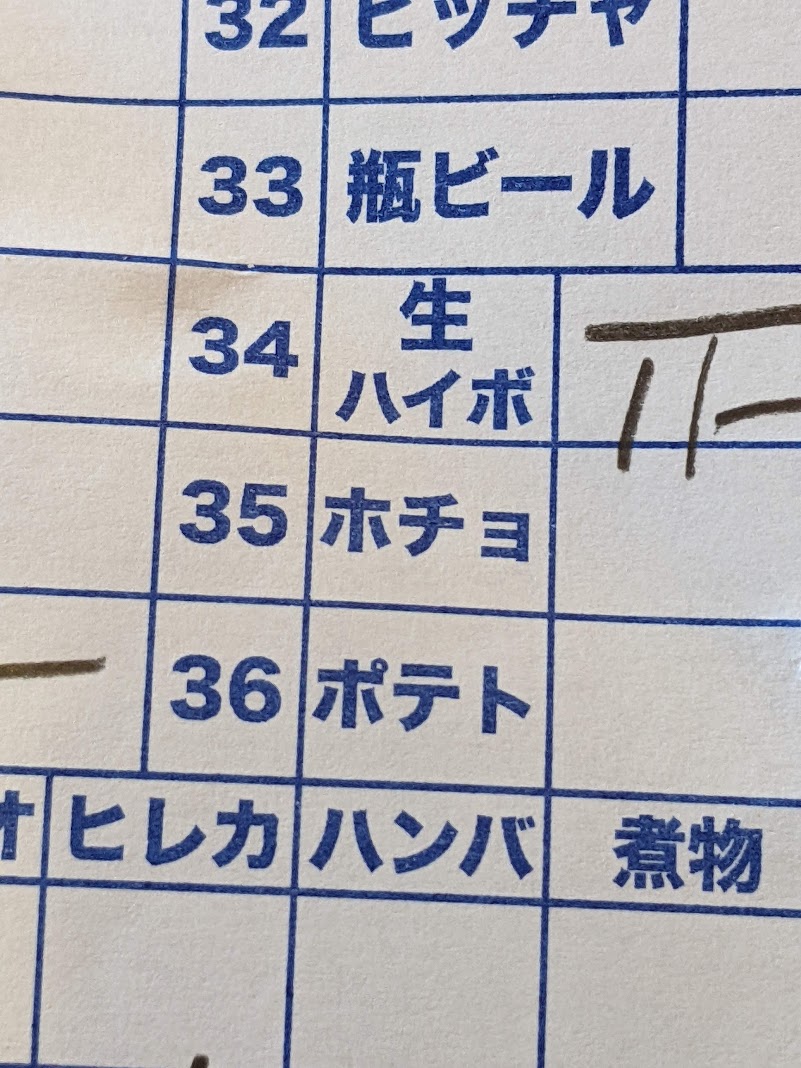 32 ピッチャ
33 瓶ビール
34 生
ハイボ
35 ホチョ
36 ポテト
オ ヒレカ ハンバ 煮物